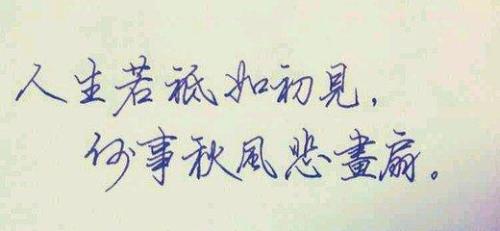 人生若祗如初見,
何事秋風悲畫扇。